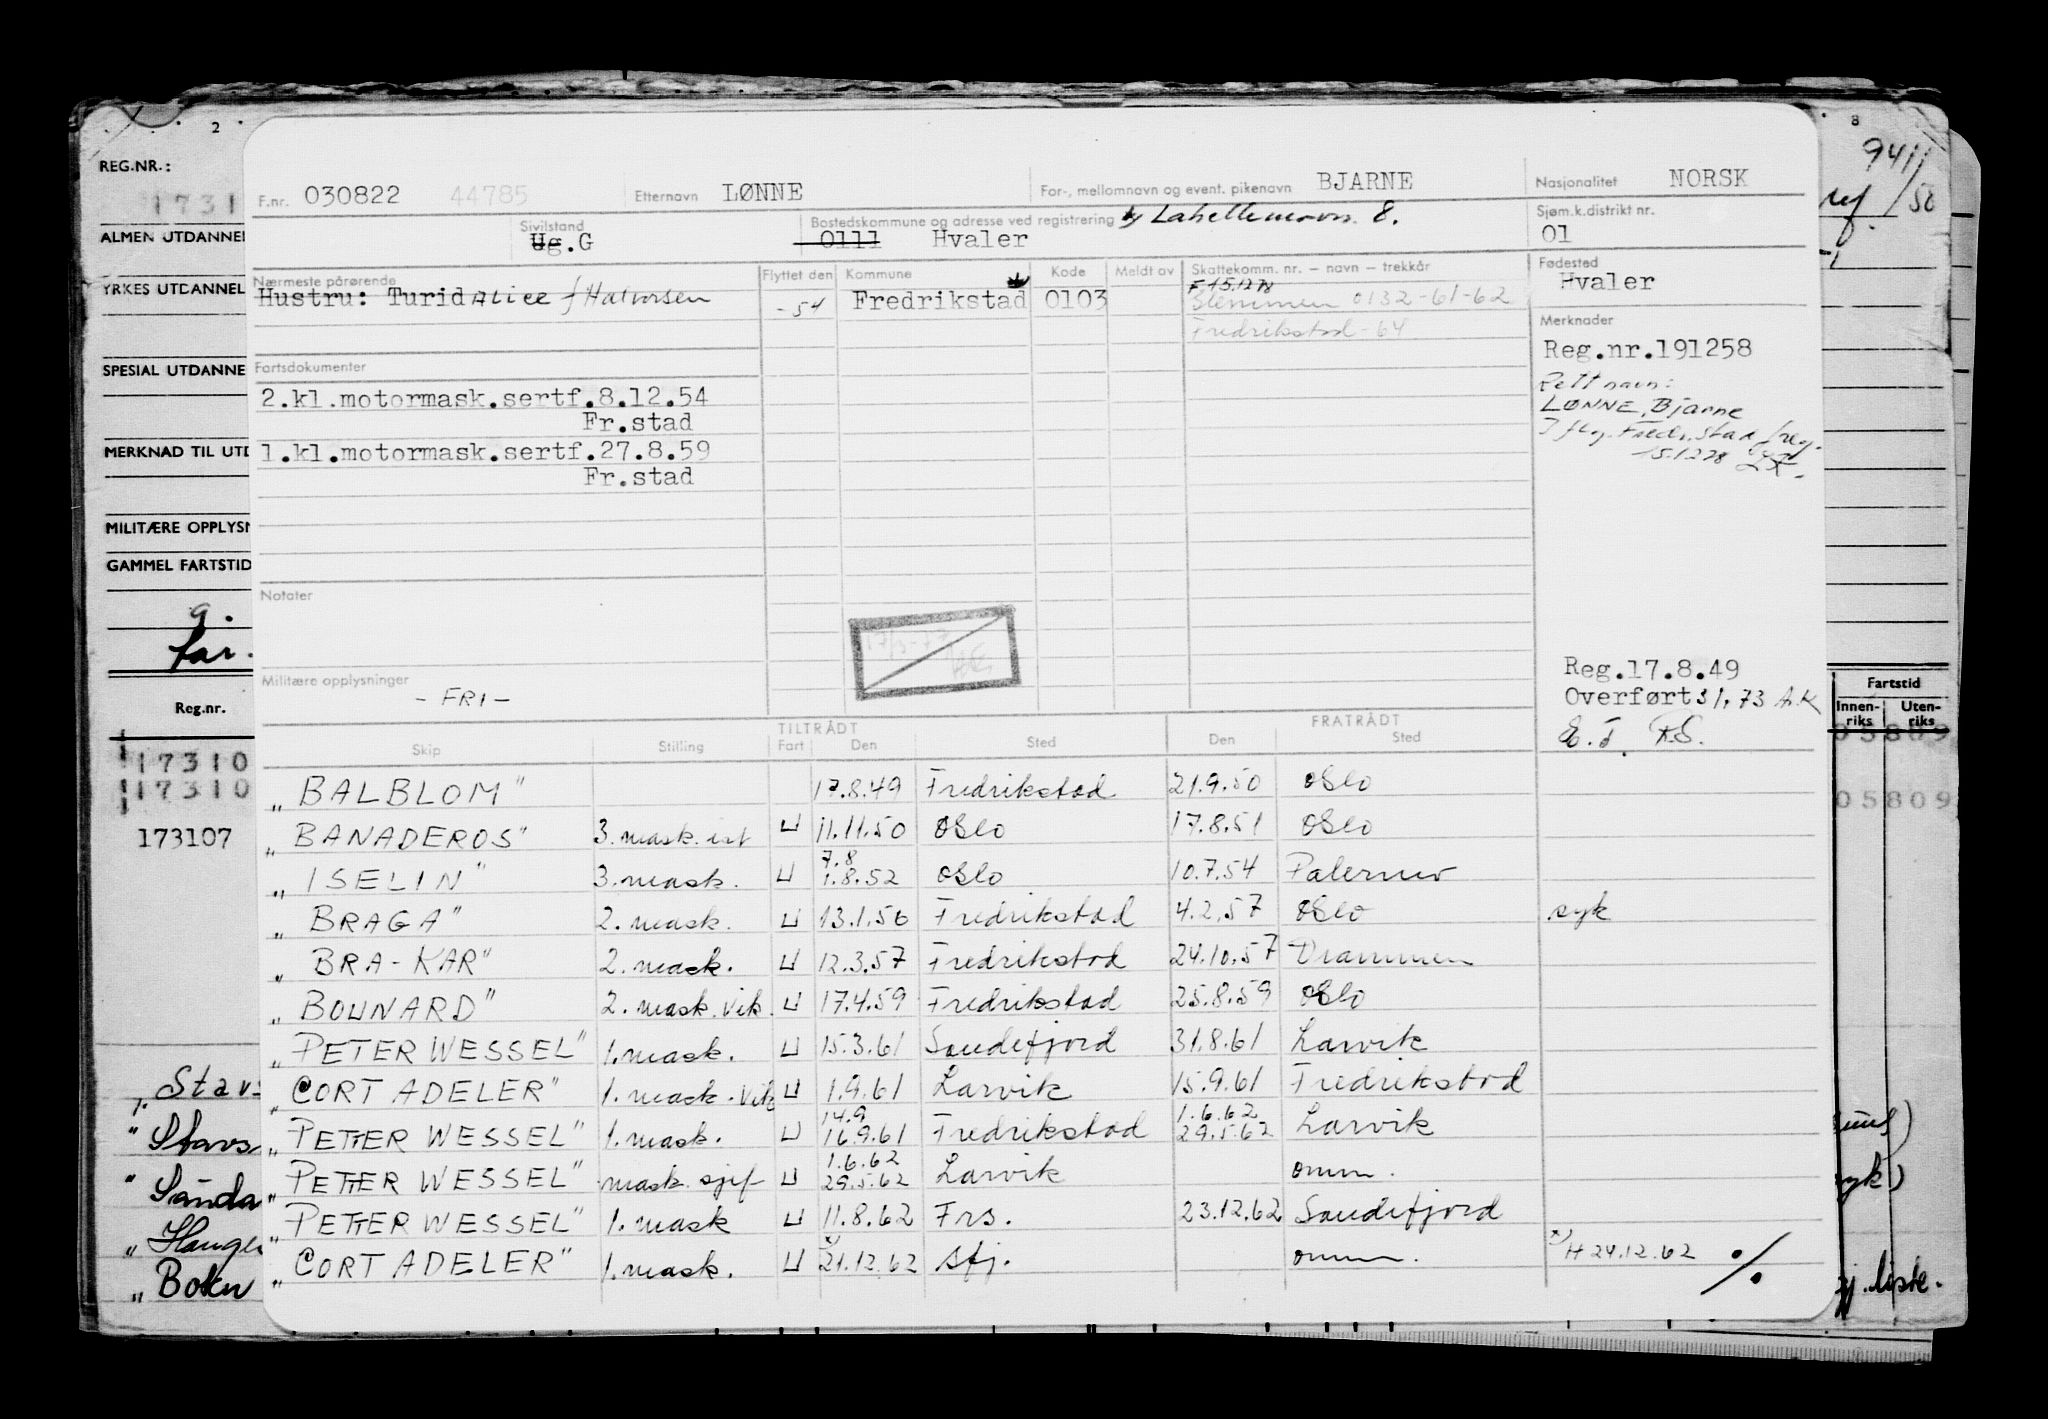 2
8
REG.NR.:
9411
/58
F.nr. 030822 44785 Etternavn LØNNE For-, mellomnavn og event. pikenavn BJARNE Nasjonalitet NORSK
1731
ALMEN UTDANNEL
Sivilstand Bostedskommune og adresse ved registrering 8. Sjøm.k.distrikt nr.
Ug.G 0111 Hvaler 01
Nærmeste pårørende Flyttet den Kommune Kode Meldt av Skattekomm. nr. – navn – trekkår Fødested
YRKES UTDANNEL
Hustru: Turid ALICE f Halvorsen -54 Fredrikstad 0103 F 15.12.78 Hvaler
Glemmen 0132-61-62
Fredrikstad-64 Merknader
Reg.nr.191258
SPESIAL UTDANNE
Fartsdokumenter
Rett navn:
2.kl.motormask.sertf.8.12.54 LØNNE, Bjarne
Fr.stad I flg. Fredr.stad freg.
MERKNAD TIL UTD
1.kl.motormask.sertf.27.8.59 15.12.78
Fr.stad
MILITÆRE OPPLYSN
GAMMEL FARTSTID
Notater
17/3-77
g.
far.
Militære opplysninger
- FRI -
Reg.17.8.49
Overført 3/1.73 A.K
E.T.
Reg.nr.
Fartstid
Innen-riks Uten-riks
TILTRÅDT FRATRÅDT
Skip Stilling Fart Den Sted Den Sted
17310 05809
17310 05809
173107
„BALBLOM" 17.8.49 Fredrikstad 21.9.50 Oslo
„BANADEROS" 3. mask. ist U 11.11.50 Oslo 17.8.51 Oslo
7.8
„ISELIN" 3. mask. U 1.8.52 Oslo 10.7.54 Palermo
„BRAGA" 2. mask. U 13.1.56 Fredrikstad 4.2.57 Oslo syk
„BRA-KAR" 2. mask. U 12.3.57 Fredrikstad 24.10.57 Drammen
„BOUNARD" 2. mask. vik. U 17.4.59 Fredrikstad 25.8.59 Oslo
„PETER WESSEL" 1. mask. U 15.3.61 Sandefjord 31.8.61 Larvik
„CORT ADELER" 1. mask. Vik U 1.9.61 Larvik 15.9.61 Fredrikstad
14.9 1.6.62
„PETTER WESSEL" 1. mask. U 16.9.61 Fredrikstad 29.5.62 Larvik
1.6.62
„PETTER WESSEL" mask. sjef U 29.5.62 Larvik omm.
„PETTER WESSEL" 1. mask U 11.8.62 Frs. 23.12.62 Sandefjord
„CORT ADELER" 1. mask. U x) 21.12.62 Sfj. omm. x) H 24.12.62 ./.
„Stavs
"Stavs
"Sanda
„Hauge
„Bokn
syk)
liste.